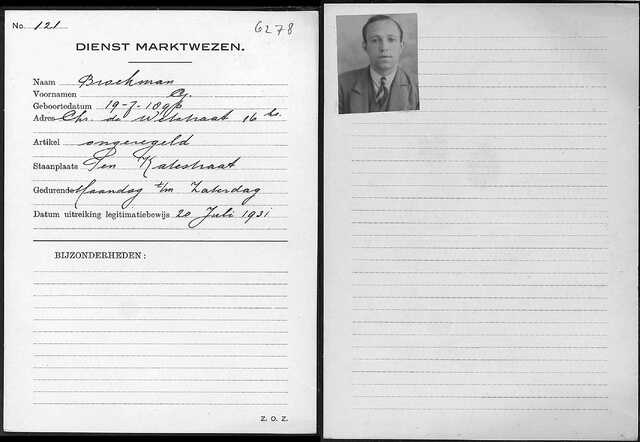 No. 121
6278
DIENST MARKTWEZEN.
Naam Brockman
Voornamen
Geboortedatum 19-7-
Adres Chr. de Wetstraat 16 hs.
Artikel ongeregeld
Staanplaats Ten Katestraat
Gedurende Maandag t/m Zaterdag
Datum uitreiking legitimatiebewijs 20 Juli 1931
BIJZONDERHEDEN:
Z. O. Z.